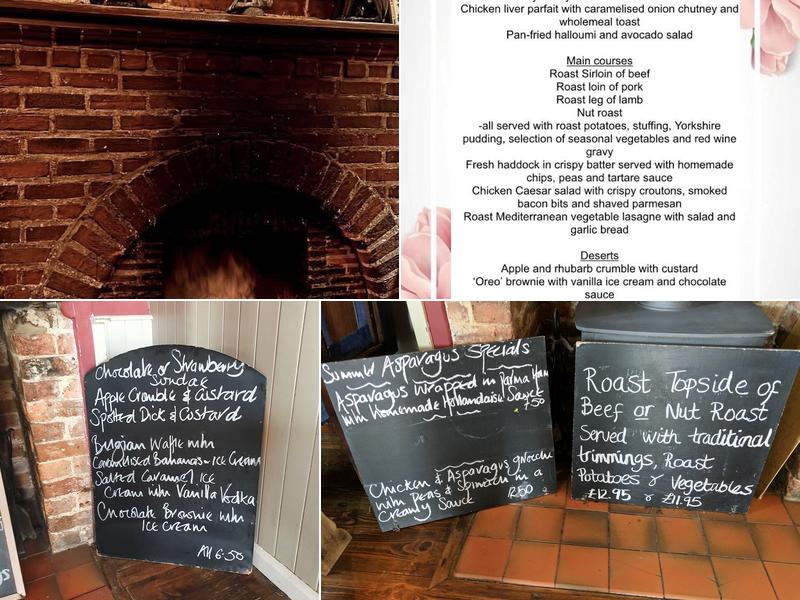 Chicken liver parfait with caramelised onion chutney and
wholemeal toast
Pan-fried halloumi and avocado salad
Main courses
Roast Sirloin of beef
Roast loin of pork
Roast leg of lamb
Nut roast
-all served with roast potatoes, stuffing, Yorkshire
pudding, selection of seasonal vegetables and red wine
gravy
Fresh haddock in crispy batter served with homemade
chips, peas and tartare sauce
Chicken Caesar salad with crispy croutons, smoked
bacon bits and shaved parmesan
Roast Mediterranean vegetable lasagne with salad and
garlic bread
Deserts
Apple and rhubarb crumble with custard
'Oreo' brownie with vanilla ice cream and chocolate
sauce
Chocolate or Strawberry
Sundae
Apple Crumble & Custard
Spotted Dick & Custard
Belgian Waffle with
Caramelised Bananas & Ice Cream
Salted Caramel Ice
Cream with Vanilla Vodka
Chocolate Brownie with
Ice Cream
All 6.50
Summer Asparagus Specials
Asparagus wrapped in Parma Ham
with Homemade Hollandaise Sauce
7.50
Chicken & Asparagus gnocchi
with Peas & Spinach in a
Creamy Sauce 12.50
Roast Topside of
Beef or Nut Roast
Served with traditional
trimmings, Roast
Potatoes & Vegetables
£12.95 & £11.95